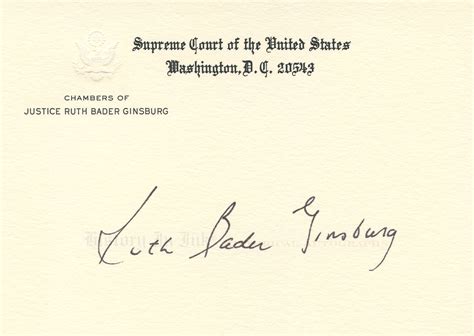 Supreme Court of the United States
Washington, D. C. 20543
CHAMBERS OF
JUSTICE RUTH BADER GINSBURG
Ruth Bader Ginsburg
History In Ink